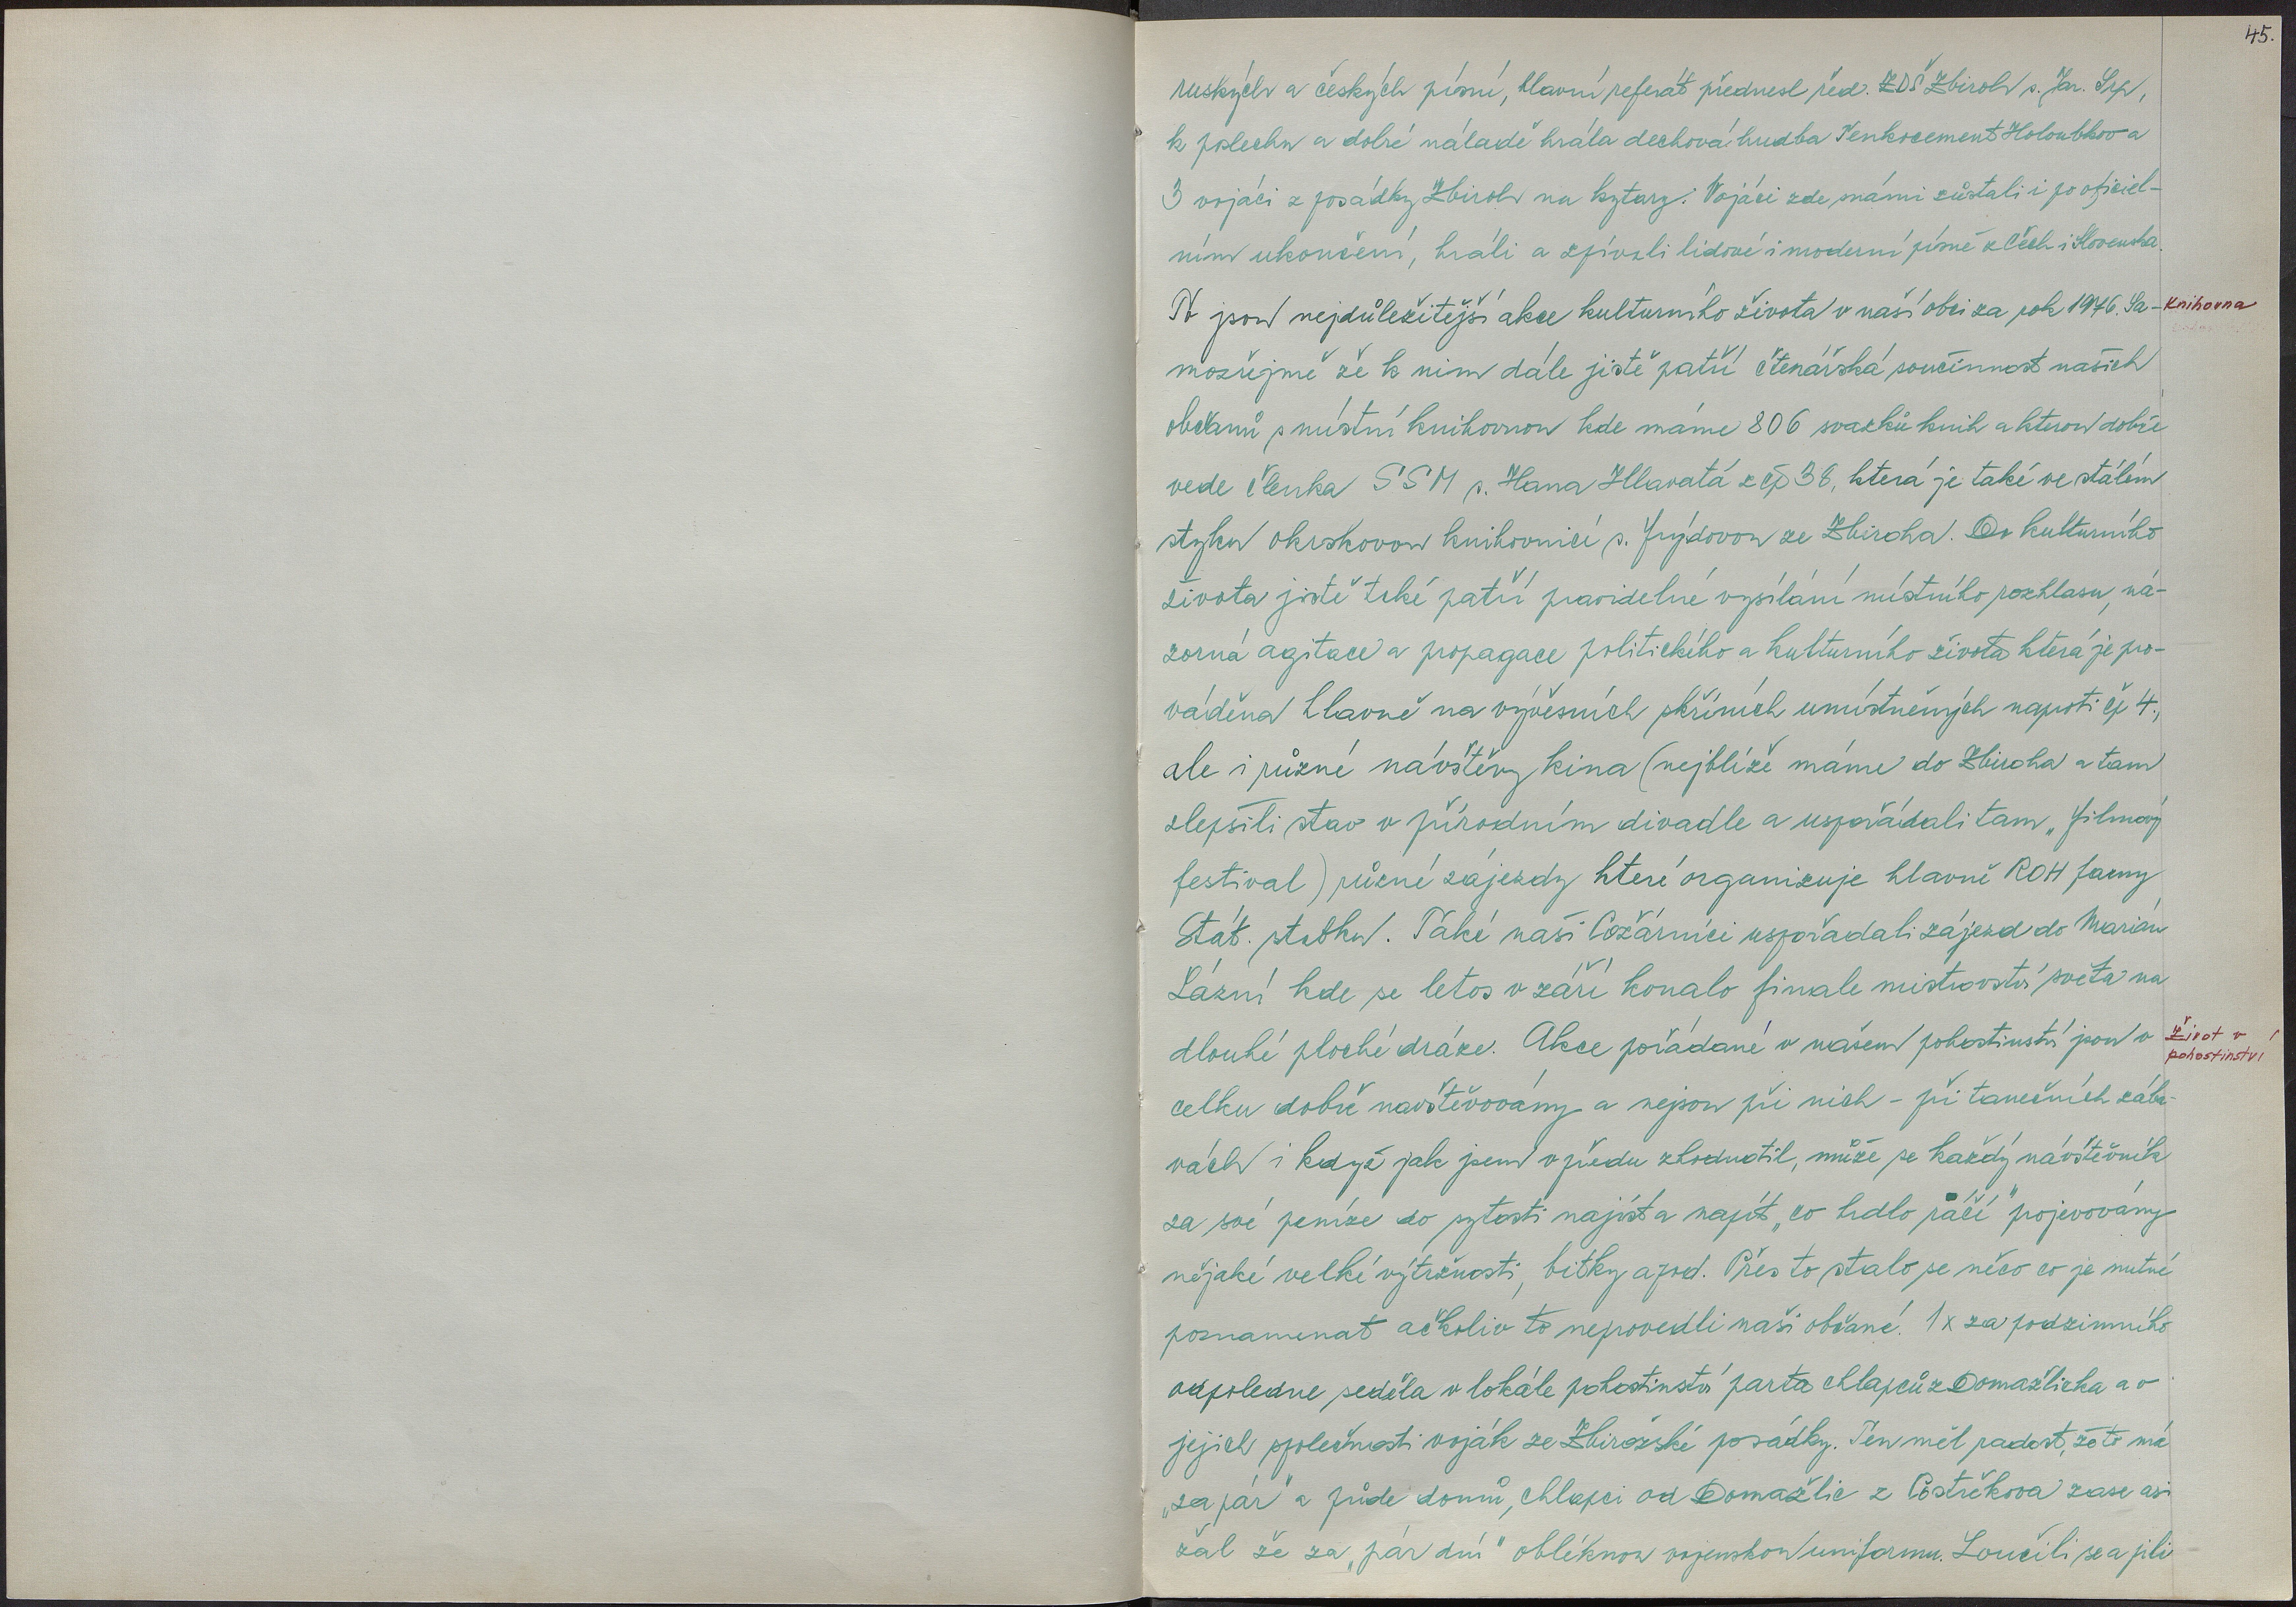 45.
ruských a českých písní, hlavní referát přednesl řed. ZDŠ Zbiroh s. Jar. Srp,
k poslechu a dobré náladě hrála dechová hudba Tenkocement Holoubkov a
3 vojáci z posádky Zbiroh na kytary. Vojáci zde s námi zůstali i po oficiel-
ním ukončení, hráli a zpívali lidové i moderní písně z Čech i Slovenska.
To jsou nejdůležitější akce kulturního života v naší obci za rok 1976. Sa-
Knihovna
mozřejmě že k nim dále jistě patří čtenářská součinnost našich
občanů s místní knihovnou kde máme 806 svazků knih a kterou dobře
vede členka SSM s. Hana Hlavatá z čp 38, která je také ve stálém
styku okrskovou knihovnicí s. Frýdovou ze Zbiroha. Do kulturního
života jistě také patří pravidelné vysílání místního rozhlasu, ná-
zorná agitace a propagace politického a kulturního života která je pro-
váděna hlavně na vývěsních skříních umístněných naproti čp 4.,
ale i různé návštěvy kina (nejblíže máme do Zbiroha a tam
zlepšili stav v přírodním divadle a uspořádali tam „filmový
festival) různé zájezdy které organizuje hlavně ROH farmy
Stát. statku. Také naši Požárníci uspořádali zájezd do Marián
Lázní kde se letos v září konalo finale mistrovství světa na
dlouhé ploché dráze. Akce pořádané v našem pohostinství jsou v
život v
pohostinství
celku dobře navštěvovány a nejsou při nich - při tanečních zába-
vách i když jak jsem v předu zhodnotil, může se každý návštěvník
za své peníze do sytosti najíst a napít „co hrdlo ráčí" projevovány
nějaké velké výtržnosti, bitky apod. Přes to stalo se něco co je nutné
poznamenat ačkoliv to neprovedli naši občané. 1x za podzimního
odpoledne seděla v lokále pohostinství parta chlapců z Domažlicka a v
jejich společnosti voják ze Zbirožské posádky. Ten měl radost, že to má
„za pár" a půde domů, chlapci od Domažlic z Postřekova zase asi
žal že za „pár dní" obléknou vojenskou uniformu. Loučili se a pili